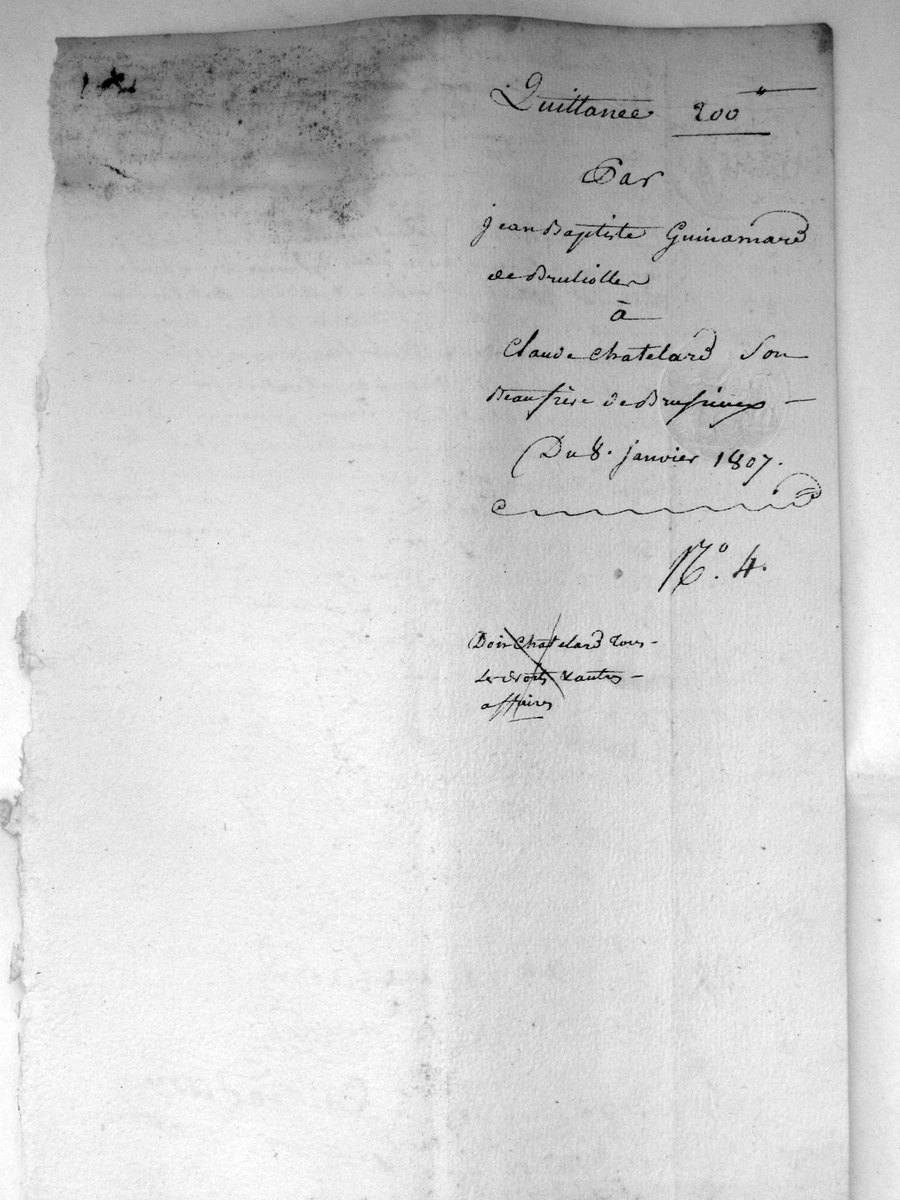 Quittance 200<sup>tt</sup>
Par
jean Baptiste Guinamard
de Bruliolles
à
Claude Chatelard Son
Beaufrère de Brussieux
Du 8. janvier 1807.
N.° 4.
Doit Chatelard tous
Les droits & autres
affaires